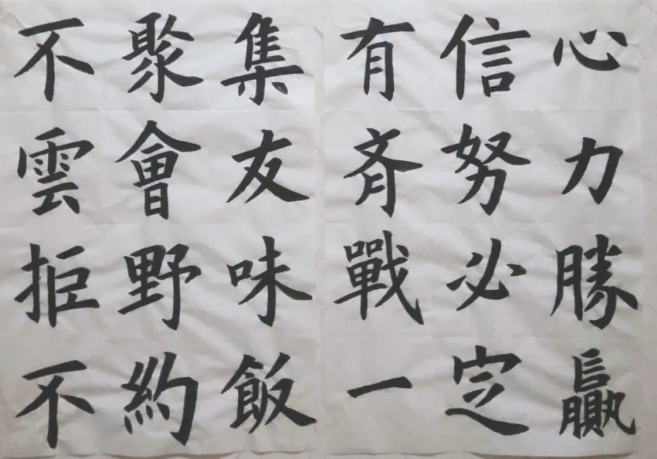 不聚集
雲會友
拒野味
不約飯
有信心
斉努力
戰必勝
一定贏